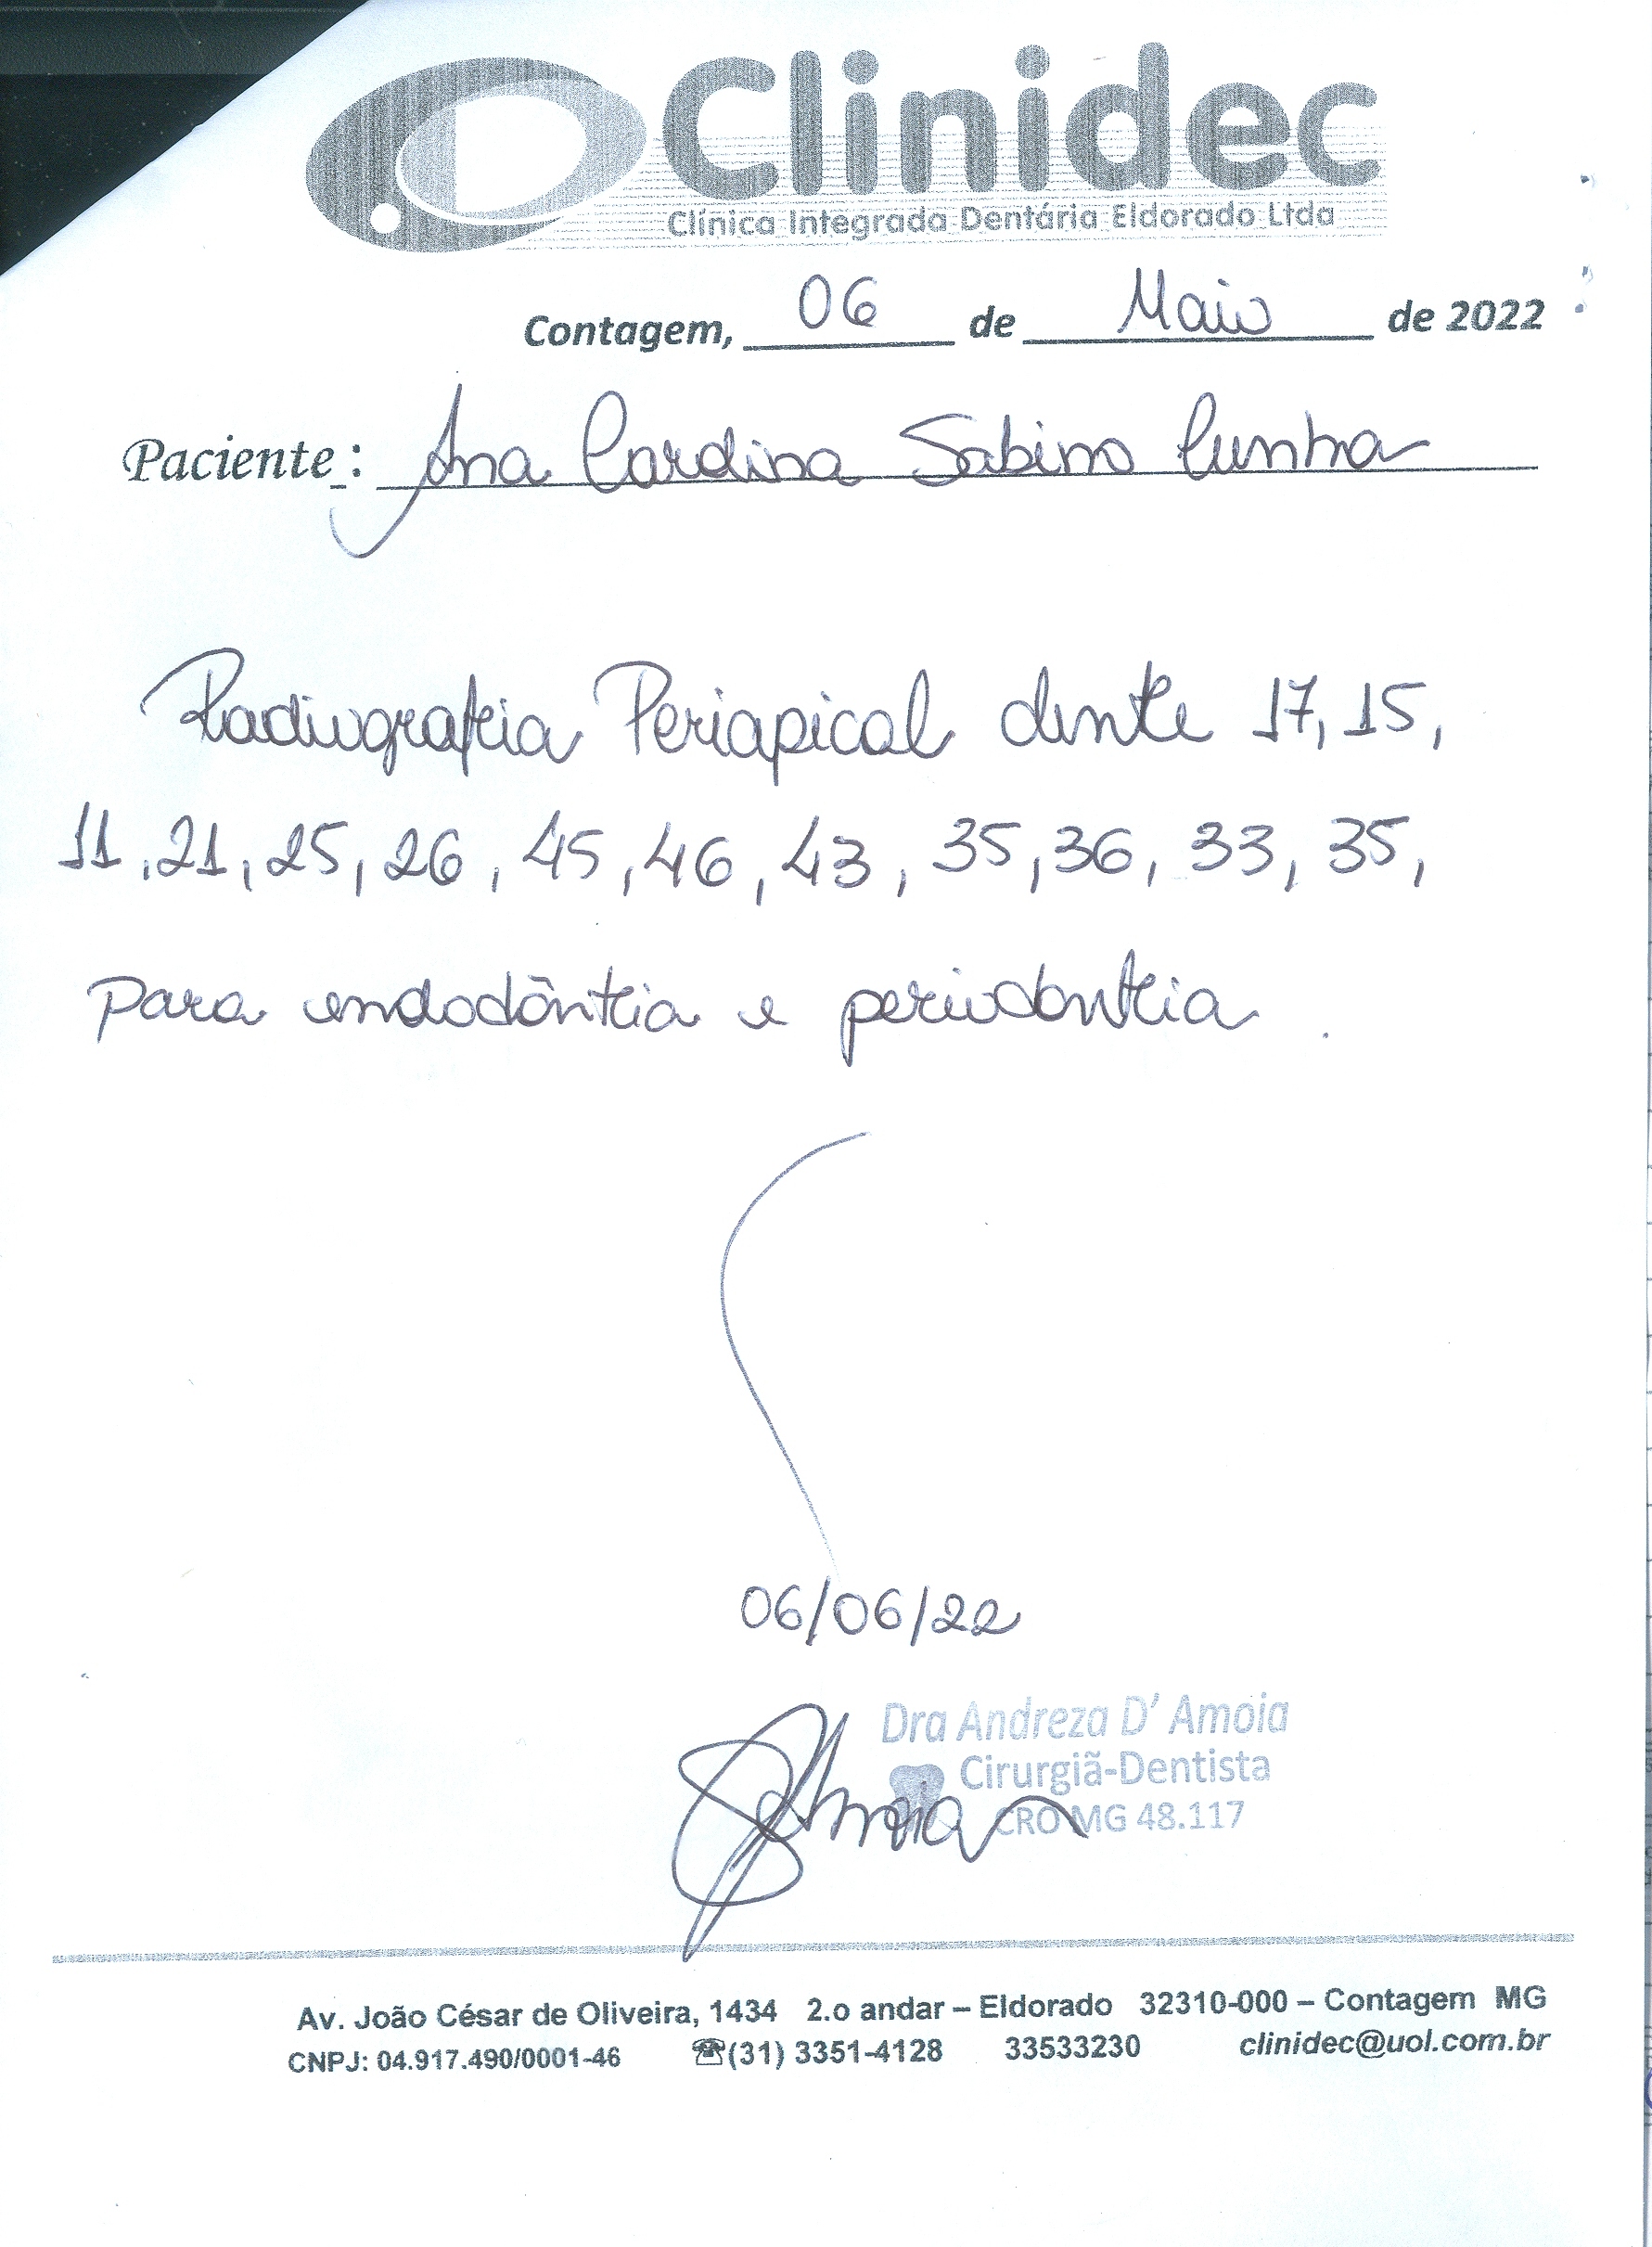 Clinidec
Clínica Integrada Dentária Eldorado Ltda
Contagem, 06 de Maio de 2022
Paciente: Ana Carolina Sabino Cunha
Radiografia Periapical dente 17, 15,
11, 21, 25, 26, 45, 46, 43, 35, 36, 33, 35,
para endodôntia e periodontia.
06/06/22
Dra Andreza D' Amoia
Cirurgiã-Dentista
CRO MG 48.117
Av. João César de Oliveira, 1434 2.o andar – Eldorado 32310-000 – Contagem MG
CNPJ: 04.917.490/0001-46 ☎(31) 3351-4128 33533230 clinidec@uol.com.br